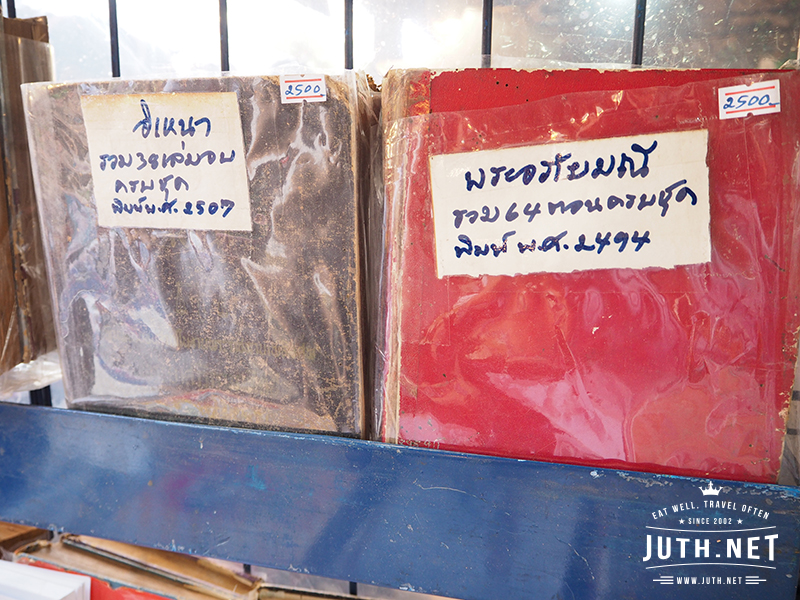 2500
อิเหนา
รวม 38 เล่มจบ
ครบชุด
พิมพ์ พ.ศ. 2507
2500.-
พระอภัยมณี
รวม 64 ตอนครบชุด
พิมพ์ พ.ศ. 2494
EAT WELL, TRAVEL OFTEN
SINCE 2002
JUTH.NET
WWW.JUTH.NET